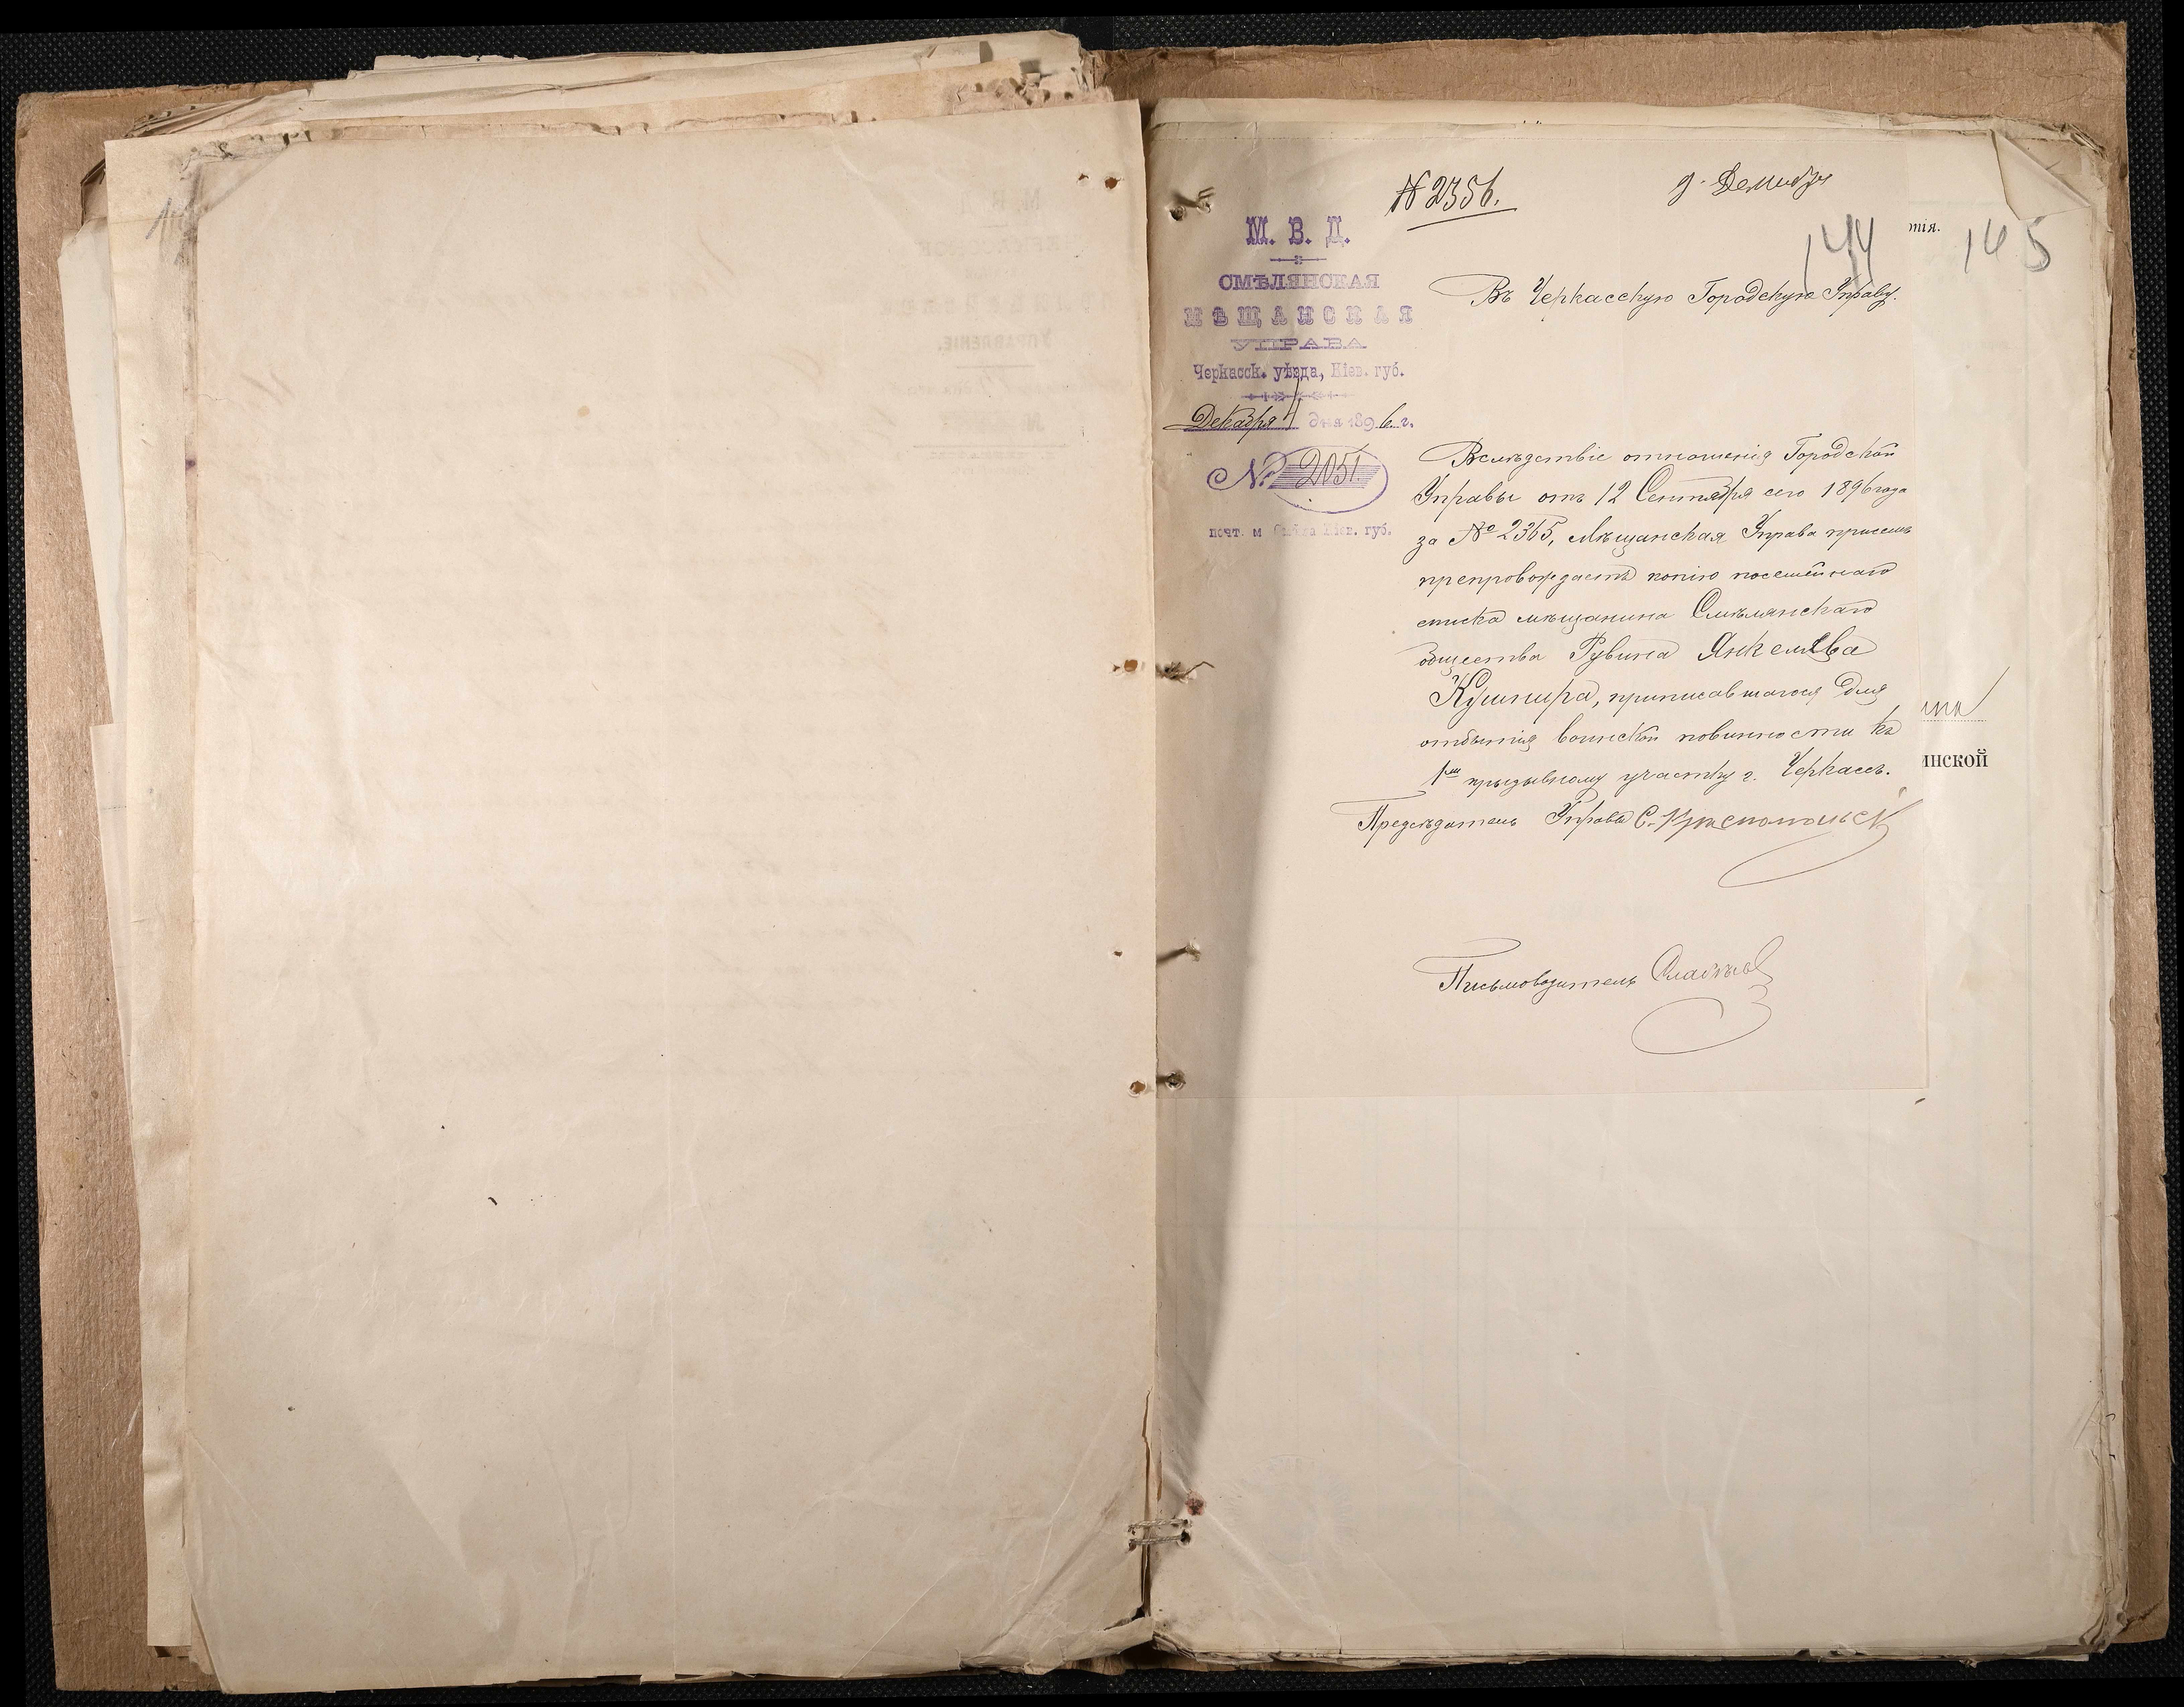 № 2356.
9 Декабря
144
тія.
145
М. В. Д.
СМѢЛЯНСКАЯ
МѢЩАНСКАЯ
УПРАВА
Черкасск. уѣзда, Кіев. губ.
Декабря 4 дня 1896 г.
№ 2051
почт. м Смѣла Кіев. губ.
Въ Черкасскую Городскую Управу.
Вслѣдствіе отношенія Городской
Управы отъ 12 Сентября сего 1896 года
за № 2365, Мѣщанская Управа при семъ
препровождаетъ копію посемейнаго
списка мѣщанина Смѣлянскаго
общества Рувина Янкелева
Кушнира, приписавшагося для
отбытія воинской повинности къ
1му призывному участку г. Черкассъ.
Предсѣдатель Управы С.
Письмоводитель
инской